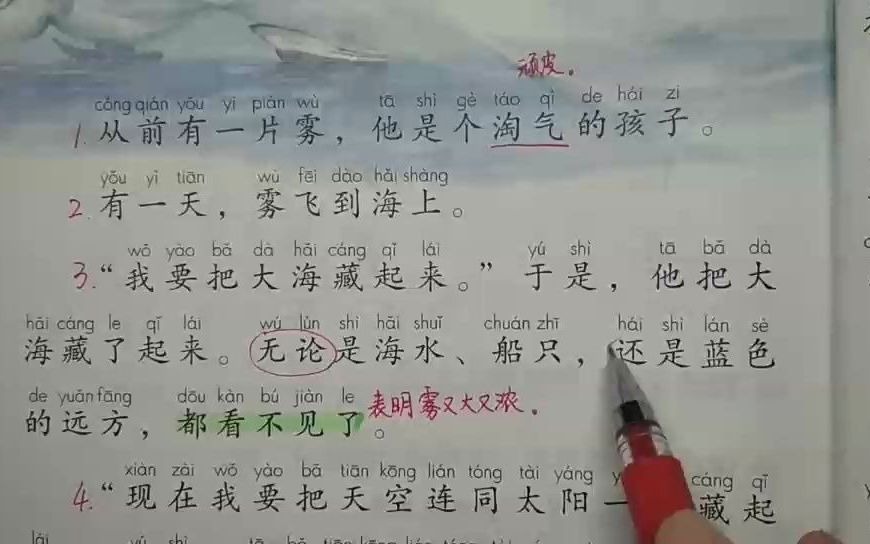 顽皮。
cóng qián yǒu yì piàn wù tā shì gè táo qì de hái zi
1.从前有一片雾，他是个淘气的孩子。
yǒu yì tiān wù fēi dào hǎi shàng
2.有一天，雾飞到海上。
wǒ yào bǎ dà hǎi cáng qǐ lái yú shì tā bǎ dà
3.“我要把大海藏起来。”于是，他把大
hǎi cáng le qǐ lái wú lùn shì hǎi shuǐ chuán zhī hái shì lán sè
海藏了起来。无论是海水、船只，还是蓝色
de yuǎn fāng dōu kàn bú jiàn le
的远方，都看不见了。表明雾又大又浓。
xiàn zài wǒ yào bǎ tiān kōng lián tóng tài yáng cáng qǐ
4.“现在我要把天空连同太阳一藏起
lái yú shì tā bǎ tiān kōng lián tóng tài yáng